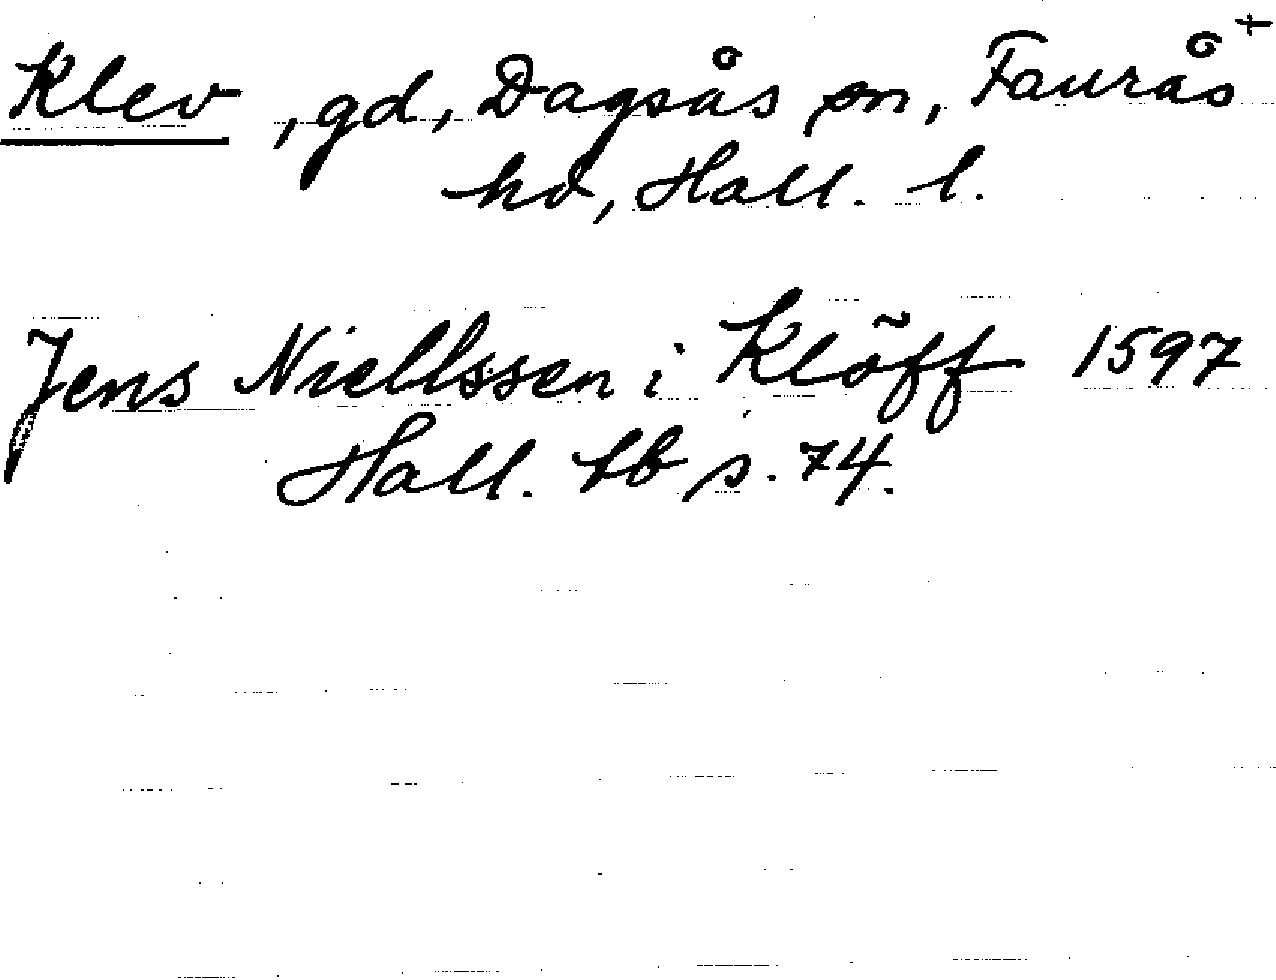 Klev, gd, Dagsås sn, Faurås +
hd, Hall. l.
Jens Niellssen i Klöff 1597
Hall. tb s. 74.